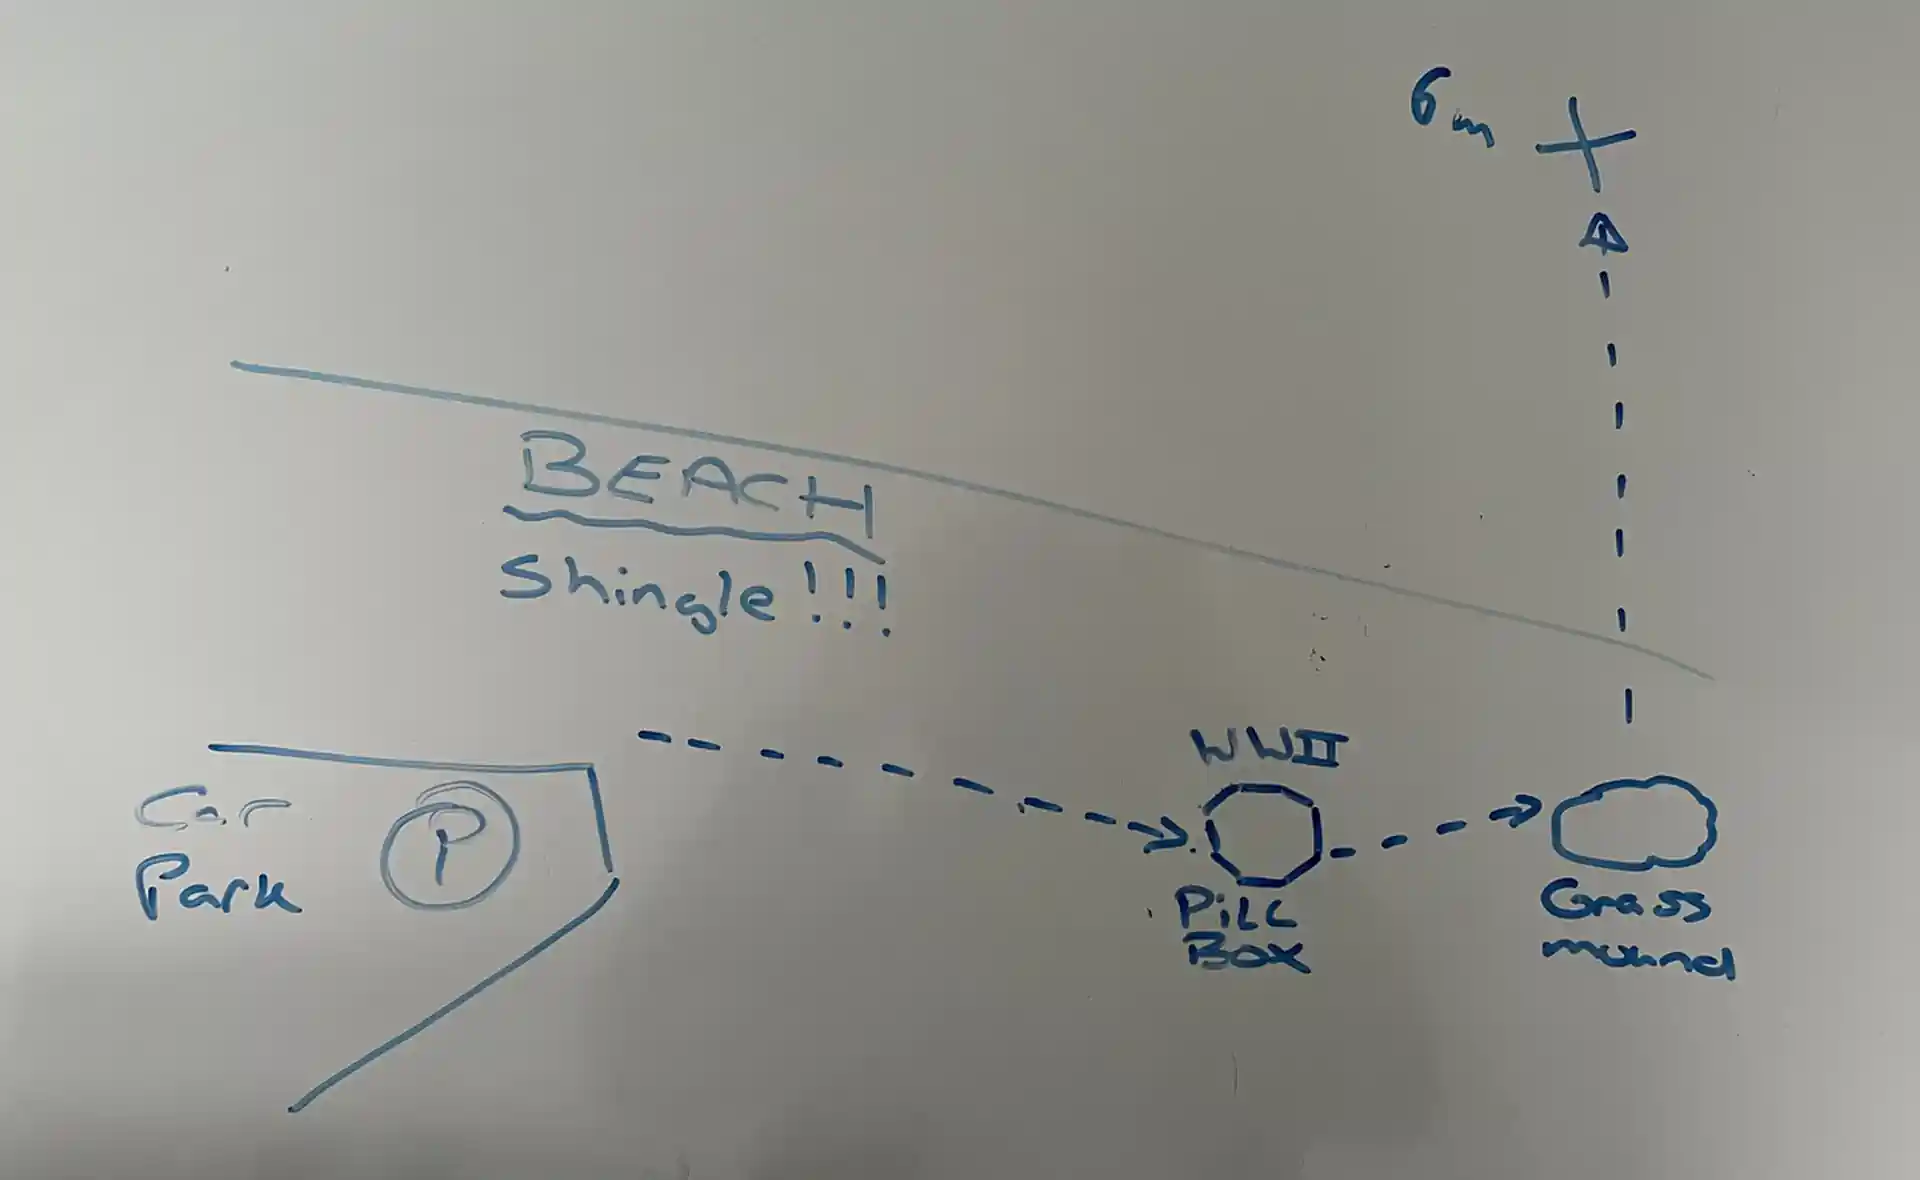 6m
BEACH
Shingle!!!
WWII
Car
Park
P
PiLL
Box
Grass
mound